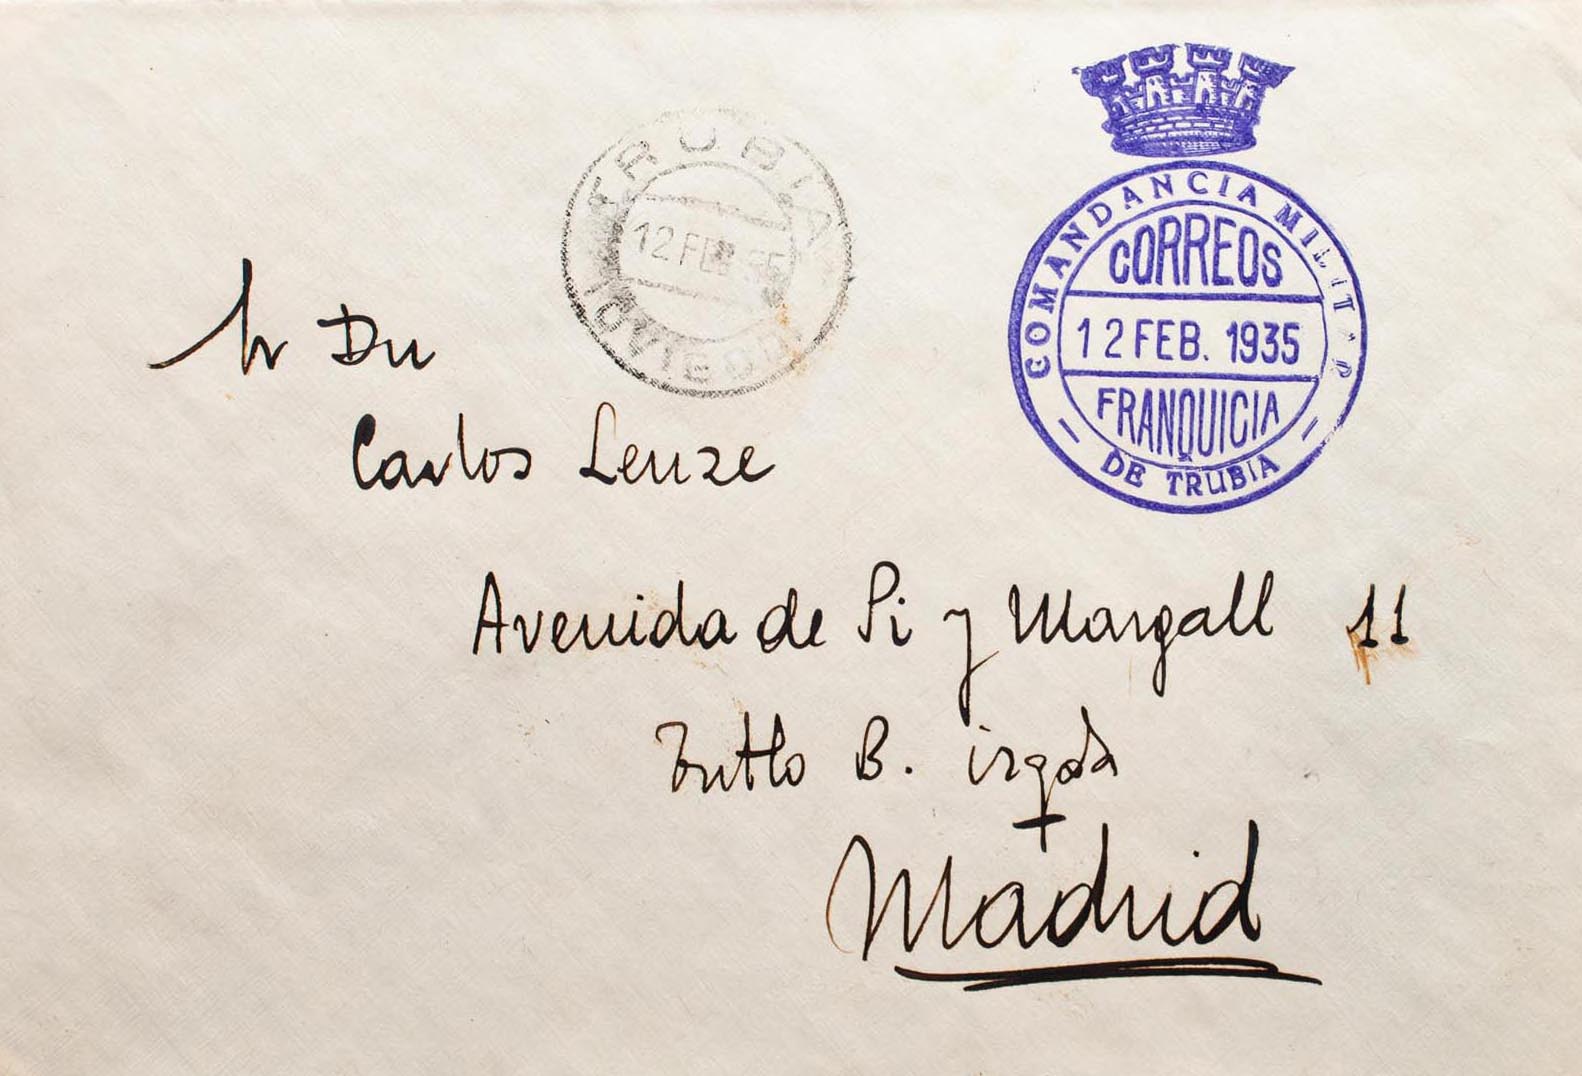 TRUBIA
12 FEB 35
(OVIEDO)
COMANDANCIA MILITAR
CORREOS
12 FEB. 1935
FRANQUICIA
DE TRUBIA
Sr Dn
Carlos Lenze
Avenida de Pi y Margall 11
B. izqda
Madrid